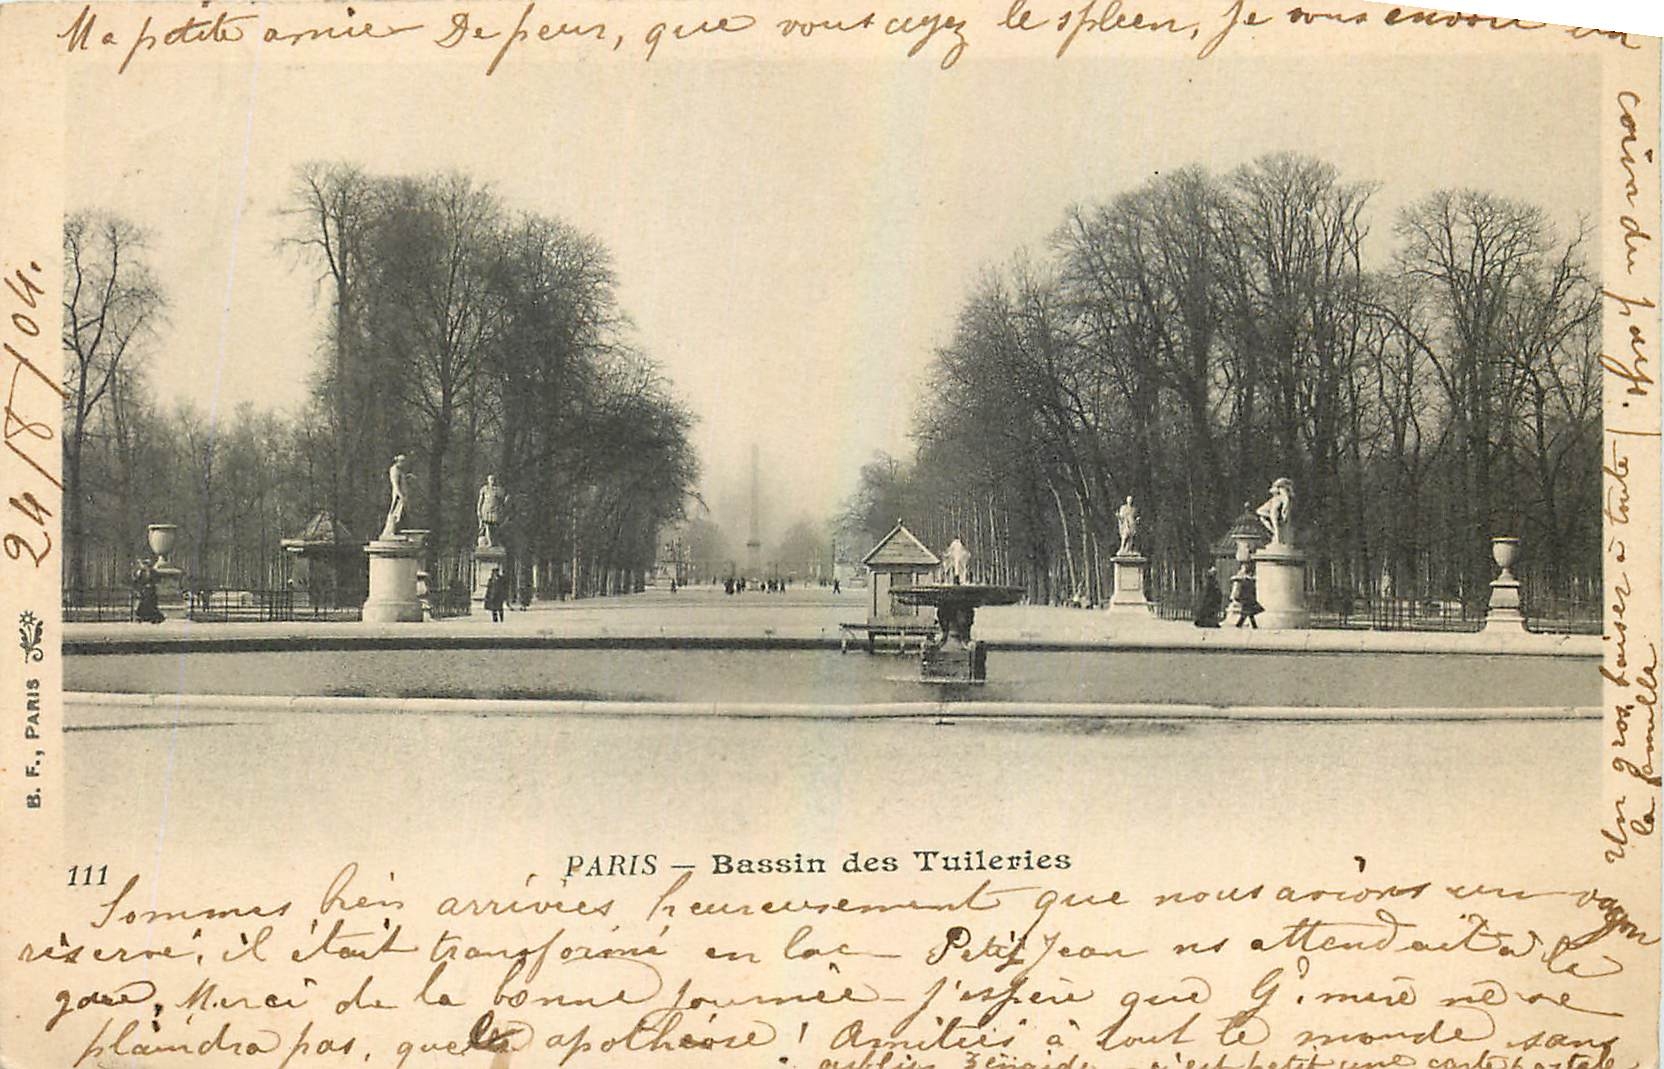 Ma petite amie De peur, que vous ayez le spleen, je vous envoie un
coin du pays.
24/8/04.
B. F., PARIS
111
PARIS — Bassin des Tuileries
Sommes bien arrivées heureusement que nous avions un wagon
réservé, il était transformé en lac — Petit Jean ns attendait à la
gare, Merci de la bonne journée — J'espère que G. mère ne se
plaindra pas, quelle apothéose ! Amitiés à tout le monde sans
oublier Zénaïde — c'est petit une carte postale
Un gros baiser à toute
la famille